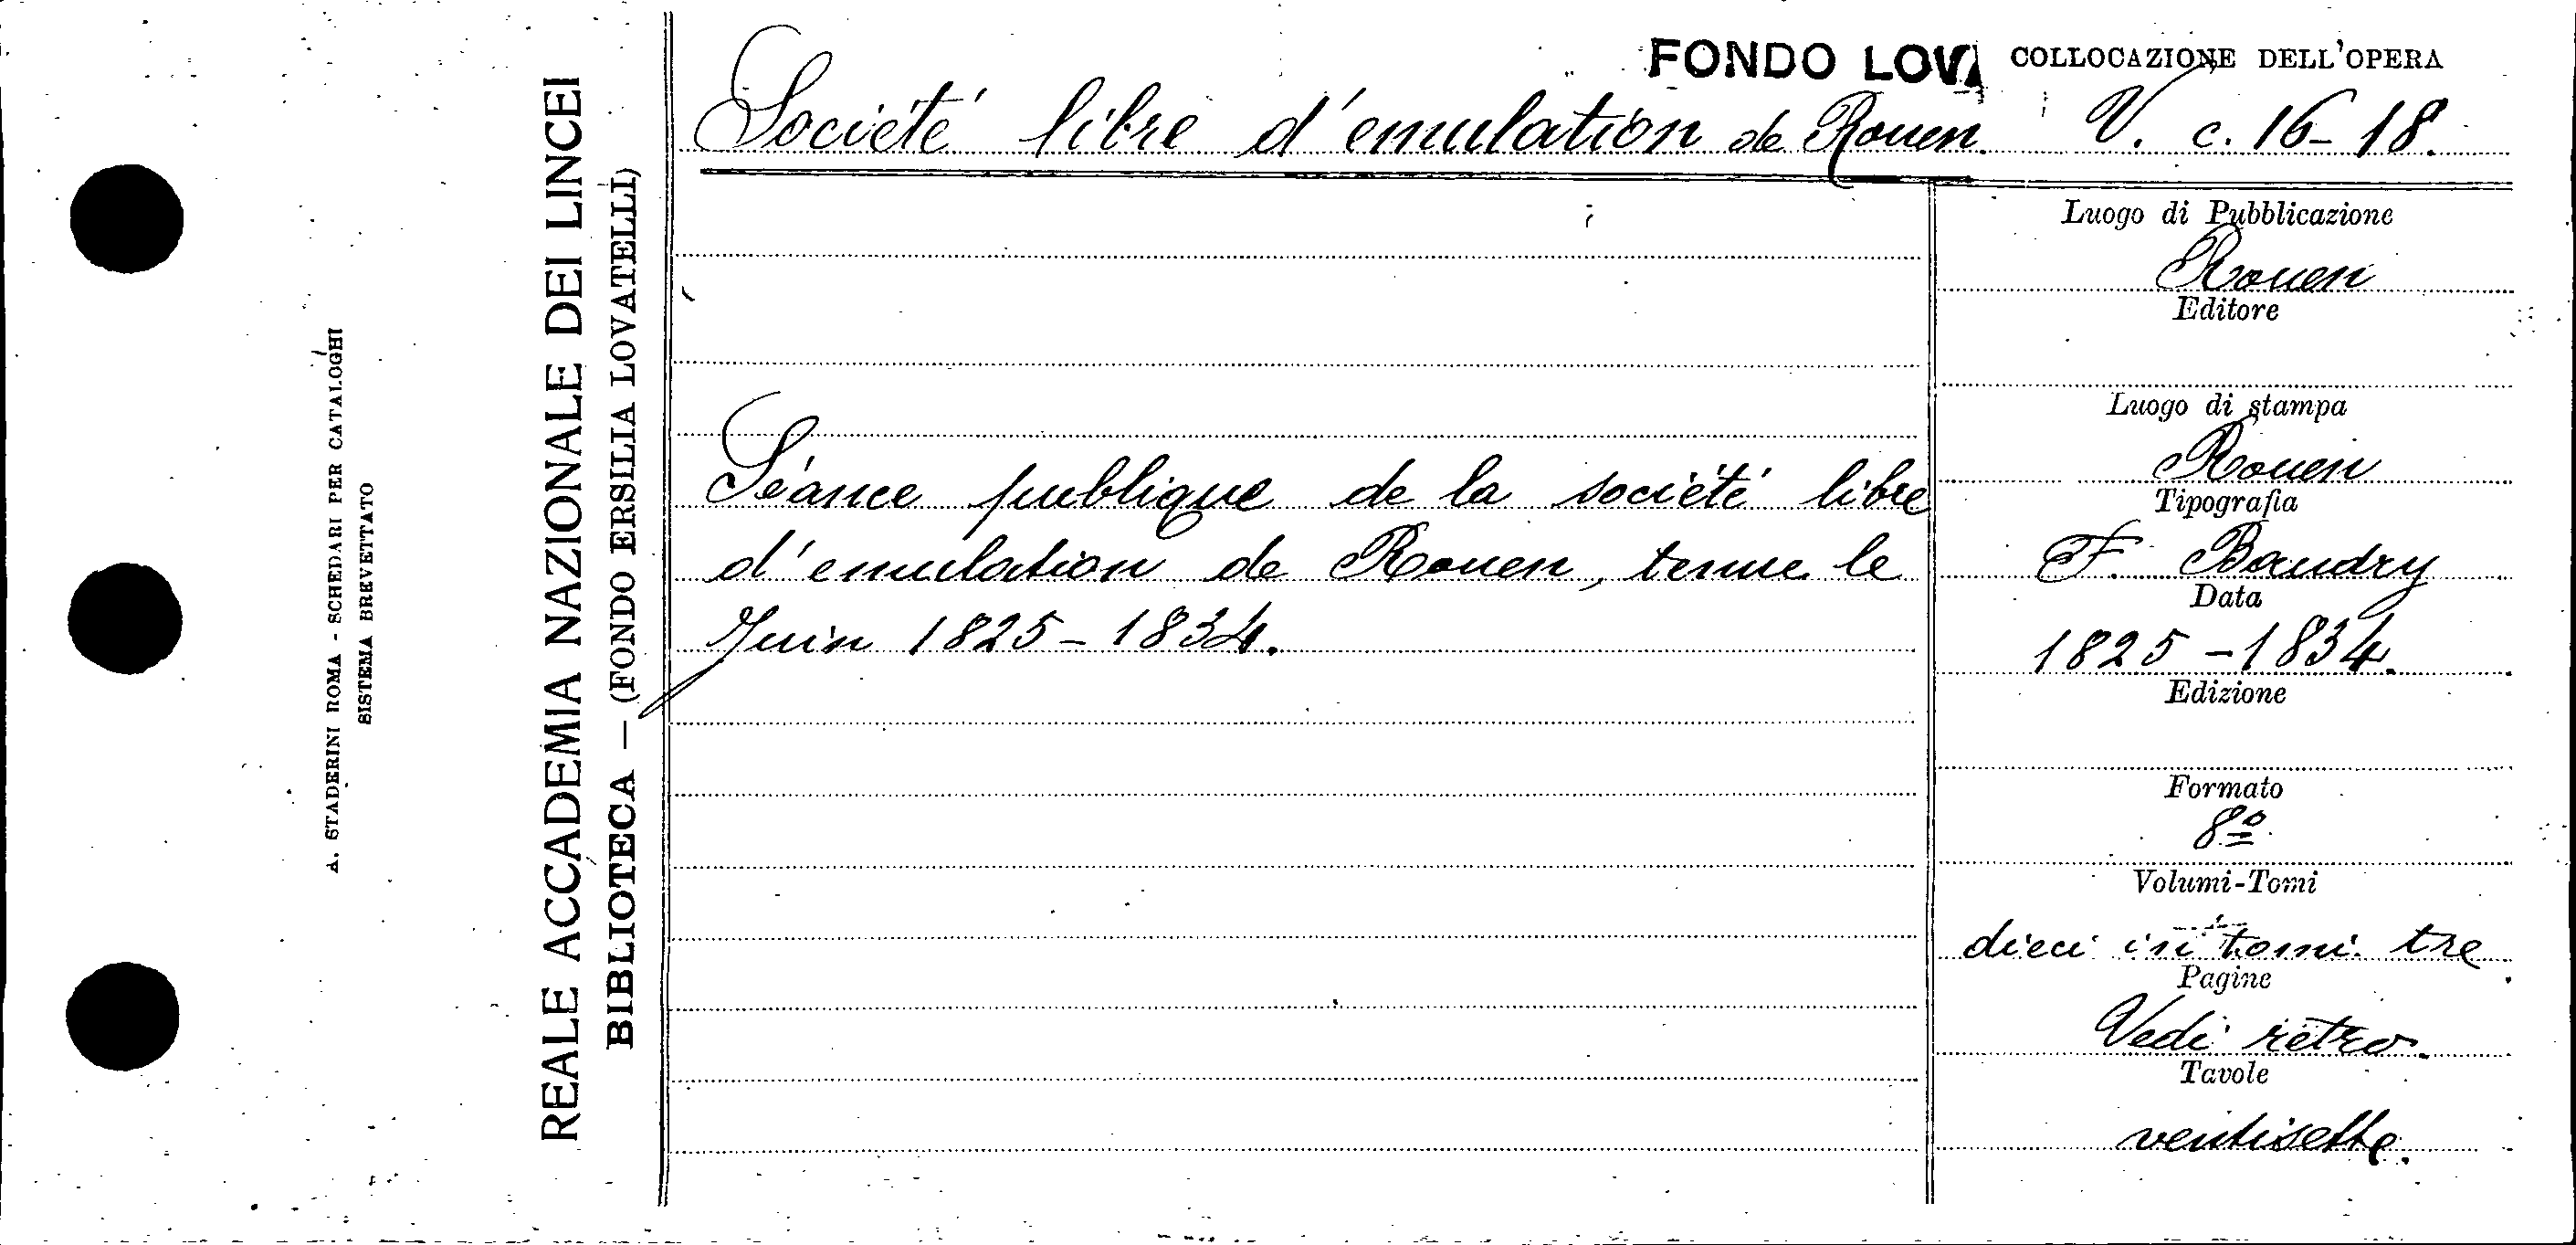 FONDO LOVA
COLLOCAZIONE DELL'OPERA
Société libre d'emulation de Rouen.
V. c. 16-18.
Luogo di Pubblicazione
Rouen
Editore
Luogo di stampa
Rouen
Tipografia
F. Baudry
Data
1825-1834.
Edizione
Formato
8º
Volumi-Tomi
dieci in tomi tre
Pagine
Vedi retro.
Tavole
ventisette.
Séance publique de la société libre
d'emulation de Rouen, tenue le
Juin 1825-1834.
REALE ACCADEMIA NAZIONALE DEI LINCEI
BIBLIOTECA — (FONDO ERSILIA LOVATELLI)
A. STADERINI ROMA - SCHEDARI PER CATALOGHI
SISTEMA BREVETTATO